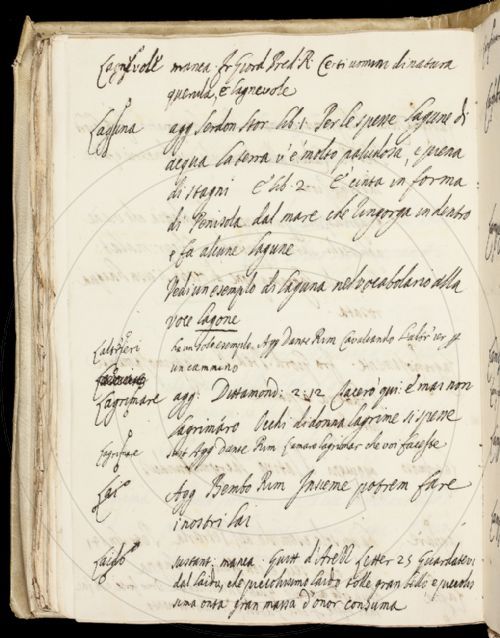 Lagnevole manca. Fr Giord Pred R. Certi uomini di natura
querula, e lagnevole
Laguna agg Serdon Stor lib. 1. Per le spesse lagune di
acqua la terra v'è molto paludosa, e piena
di stagni E lib. 2 E' cinta in forma
di Penisola dal mare che l'ingorga in dentro
e fa alcune lagune
Vedi un esempio di laguna nel vocabolario alla
voce lagone
L'altrieri ha un solo esempio. Agg Dante Rim Cavalcando l'altr'ier p
un cammino
Lagrimare agg: Dittamond: 2. 12 Jacero qui: e mai non
lagrimáro Occhi di donna lagrime si spesse
Lagrimare sust Agg Dante Rim L'amaro lagrimar che voi faceste
Lai Agg Bembo Rim Insieme potrem fare
i nostri lai
Laido sustant: manca: Guitt d'Arezz Letter 25 Guardatevi
dal laido, che picciolissimo laido tolle gran
sima onta gran massa d'onor consuma